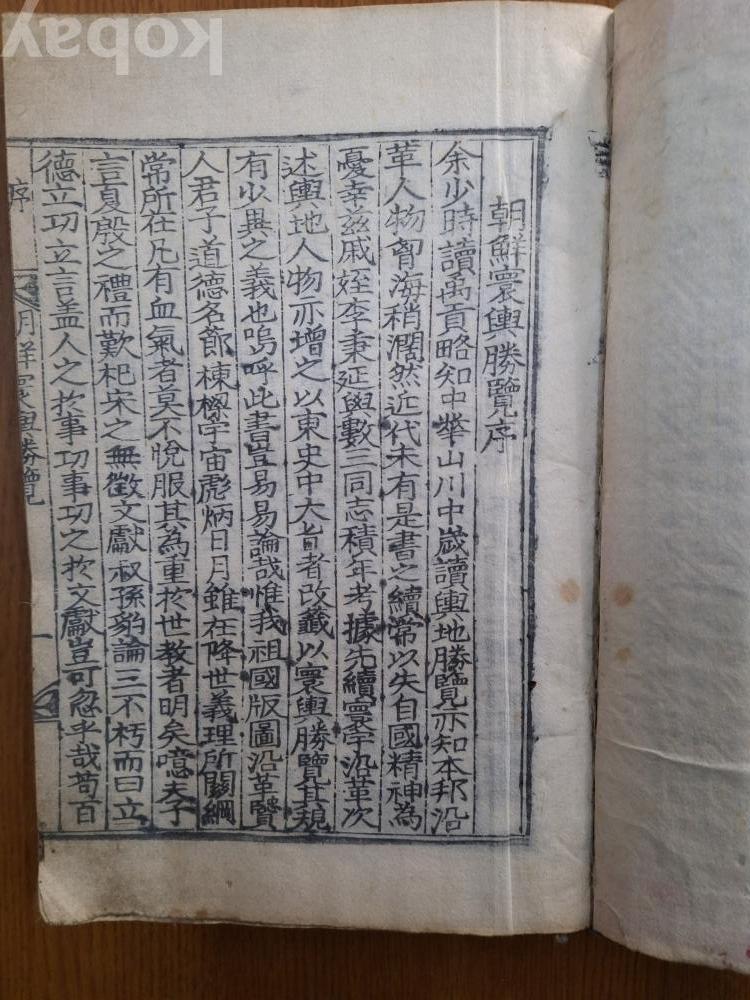 朝鮮寰輿勝覽序
余少時讀禹貢略知中華山川中歲讀輿地勝覽亦知本邦沿
革人物胷海稍濶然近代未有是書之續常以失自國精神為
憂幸玆戚姪李秉延與數三同志積年考據先續寰宇沿革次
述輿地人物亦增之以東史中大旨者改籤以寰輿勝覽其規
有少異之義也嗚呼此書豈易易論哉惟我祖國版圖沿革賢
人君子道德名節棟樑宇宙彪炳日月雖在降世義理所關綱
常所在凡有血氣者莫不悅服其為重於世教者明矣噫夫子
言夏殷之禮而歎杞宋之無徵文獻叔孫豹論三不朽而曰立
德立功立言盖人之於事功事功之於文獻豈可忽乎哉苟百
序 朝鮮寰輿勝覽 一
kobay